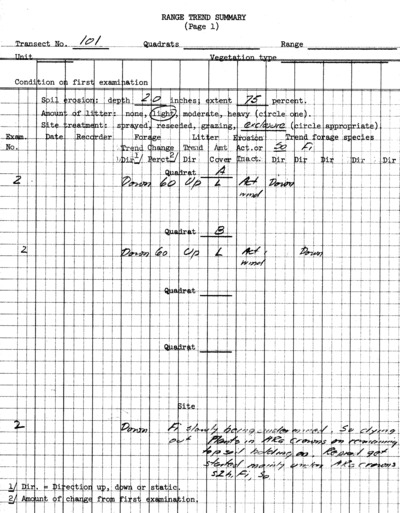 RANGE TREND SUMMARY
(Page 1)
Transect No. 101 Quadrats Range
Unit Vegetation type
Condition on first examination
Soil erosion: depth 2.0 inches; extent 75 percent.
Amount of litter: none, light, moderate, heavy (circle one).
Site treatment: sprayed, reseeded, grazing, exclosure (circle appropriate).
Exam. Date Recorder Forage Litter Erosion Trend forage species
No. Trend Change Trend Amt Act.or So Fi
Dir1/ Perct2/ Dir Cover Inact. Dir Dir Dir Dir Dir
Quadrat A
2 Down 60 Up L Act Down
wind
Quadrat B
2 Down 60 Up L Act Down
wind
Quadrat
Quadrat
Site
2 Down Fi slowly being undermined. So dying
out Plants in ARa crowns on remaining
topsoil holding on. Repeat got
started mainly under ARa crowns
Fi, So
1/ Dir. = Direction up, down or static.
2/ Amount of change from first examination.